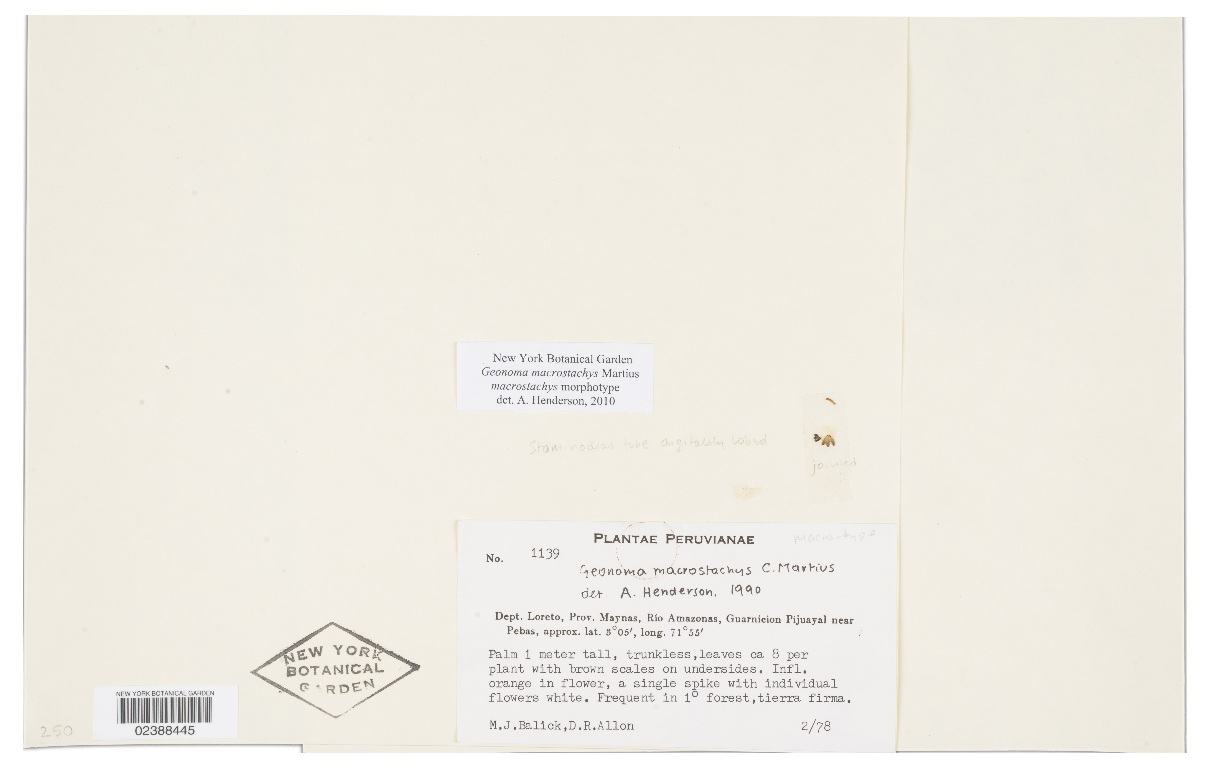 New York Botanical Garden
Geonoma macrostachys Martius
macrostachys morphotype
det. A. Henderson, 2010
Staminodial tube digitately lobed
joined
PLANTAE PERUVIANAE
No. 1139
Geonoma macrostachys C. Martius
det A. Henderson, 1990
Dept. Loreto, Prov. Maynas, Río Amazonas, Guarnicion Pijuayal near
Pebas, approx. lat. 3°05', long. 71°55'
Palm 1 meter tall, trunkless,leaves ca 8 per
plant with brown scales on undersides. Infl.
orange in flower, a single spike with individual
flowers white. Frequent in 1° forest,tierra firma.
M.J.Balick,D.R.Allon 2/78
NEW YORK
BOTANICAL
GARDEN
NEW YORK BOTANICAL GARDEN
02388445
250